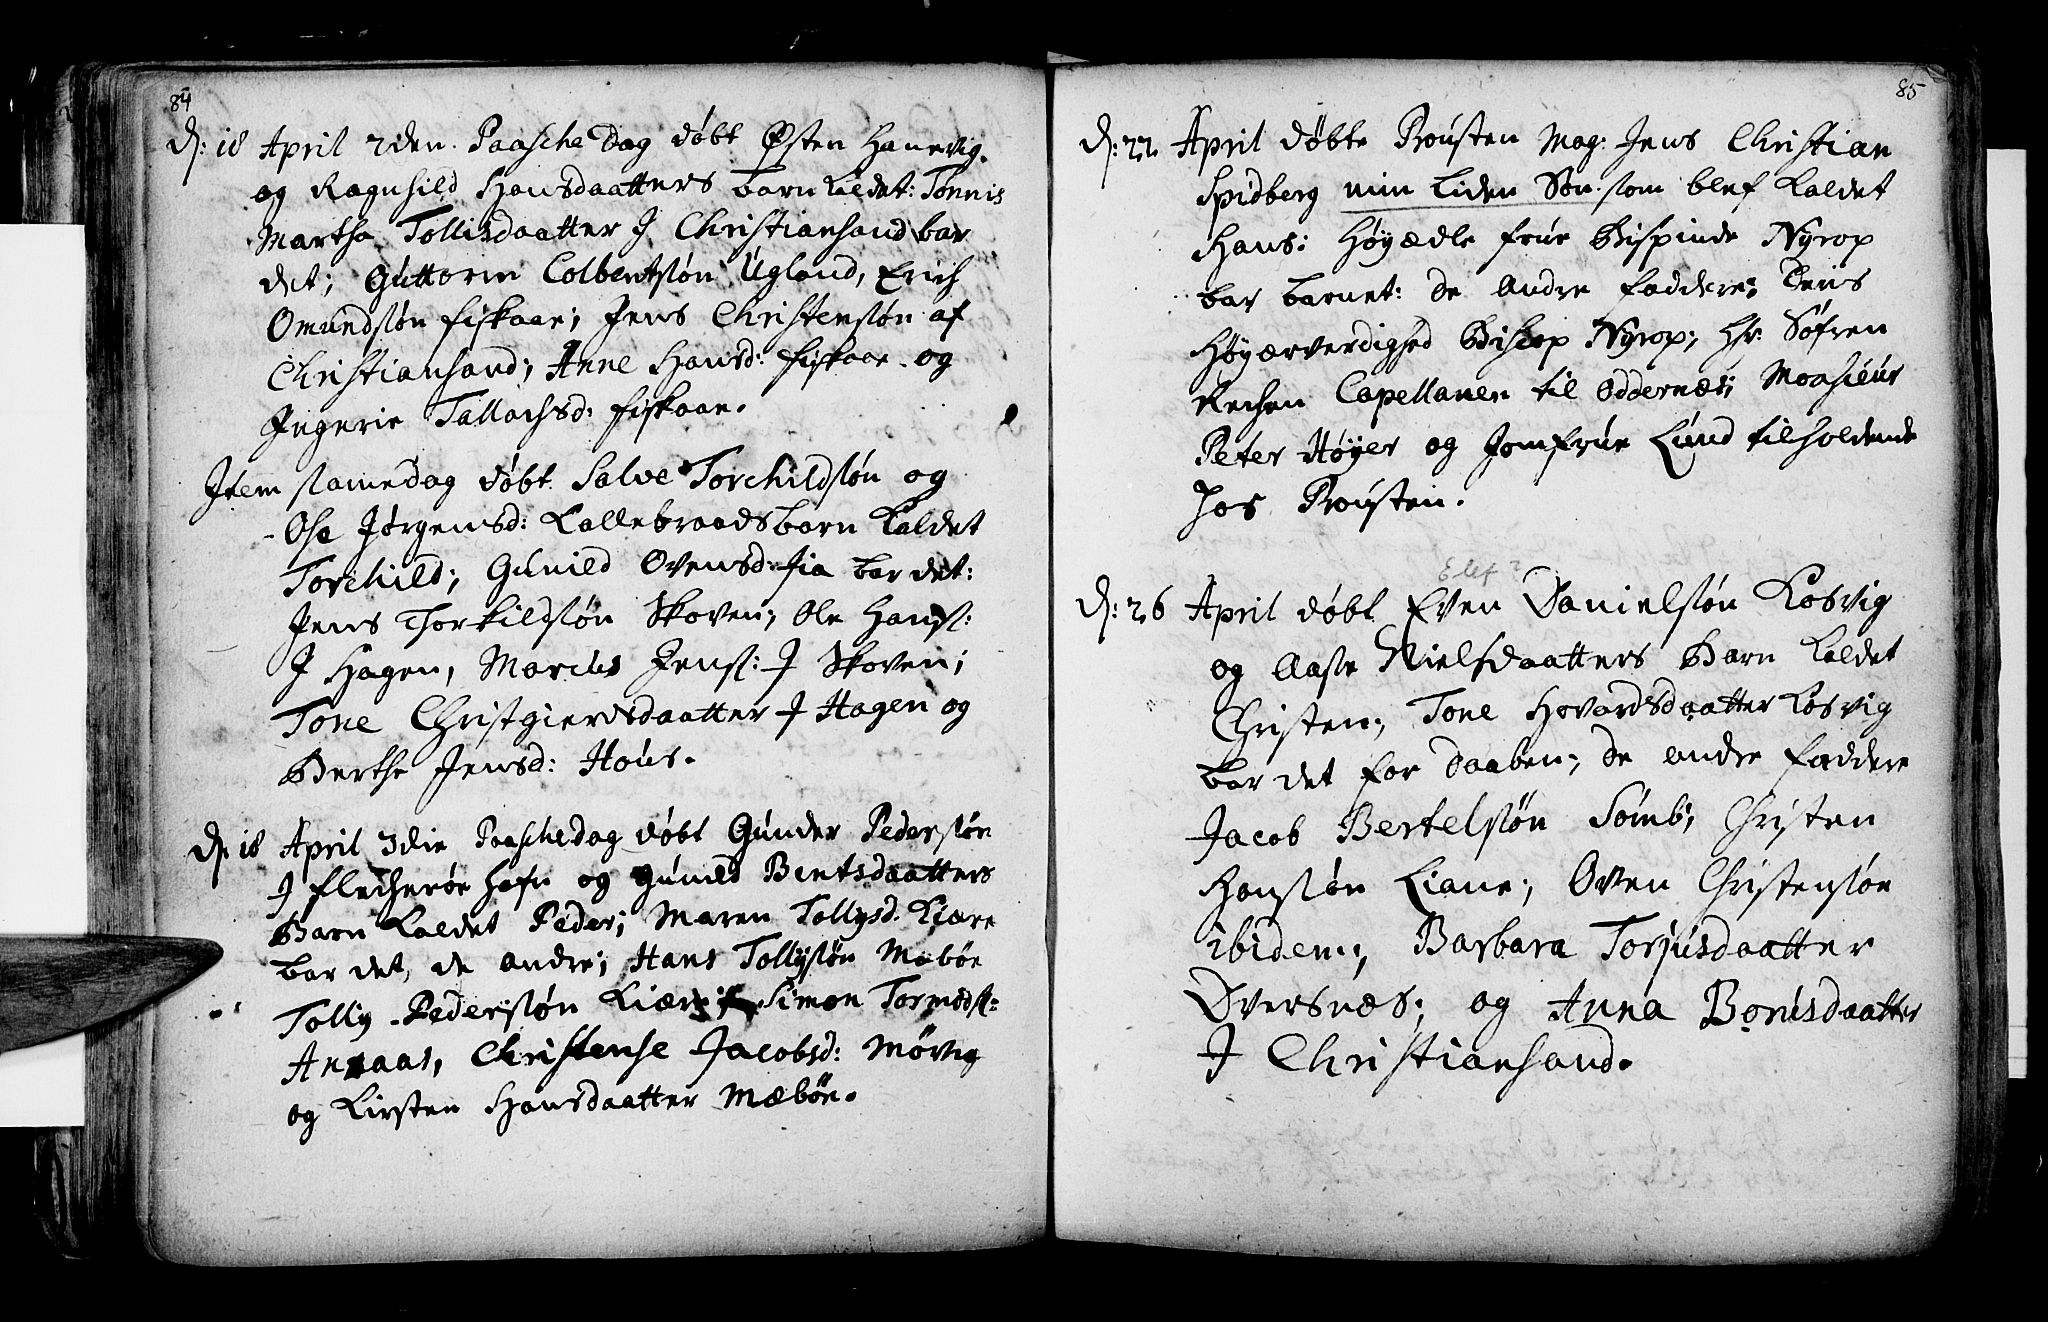 84
d: 18 April 2den Paasche Dag døbt Østen Hanevig.
og Ragnhild Hansdaatters barn kaldet: Tønnis
Martha Tollisdaatter J Christiansand bar
det; Guttorm Colbentsløn Ugland, Erich
Omundsløn fiskaae; Jens Christensløn af
Christiansand; Anne Hansd: fiskaae. og
Jngerie Tallachsd: fiskaae.
Jtem samedag døbt Salve Torchildsløn og
Ose Jørgensd: Kallebraads barn kaldet
Torchild; Gunild Ovensd: fia bar det:
Jens Thorkildsløn Skoven; Ole Hansl:
J Hagen, Marcus Jensl: J Skoven;
Tone Christgierdsdaatter J Hagen og
Berthe Jensd: Hous.
d: 18 April 3die Paaschedag døbt Gunder Pedersløn
J flecherøe hafn og Gunild Bentsdaatters
Barn kaldet Peder; Maren Tollysd. Kiære
bar det, de andre; Hans Tollysløn Mæbøe
Tolly Pedersløn Kiær; Simon Tormodsl:
Anaas, Christense Jacobsd: Møvig
og Kirsten Hansdaatter Mæbøe.
85
d: 22 April døbte Provsten Mag: Jens Christian
Spidberg min liden Søn som blef kaldet
Hans: Høyædle frue Bispinde Nyrop
bar barnet: de andre faddere; Deris
Høyærverdighed Biscop Nyrop; Hr: Søfren
Rechen Capellanen til Oddernæs; Monsieur
Peter Høyer og Jomfrue Lund tilholdende
hos Provsten.
Elef?
d: 26 April døbt Even Danielsløn Kosvig
og Aase Nielsdaatters Barn kaldet
Christen; Tone Hovardsdaatter Kosvig
bar det for daaben; de andre faddere
Jacob Bertelsløn Sømb; Christen
Hansløn Liane; Oven Christensløn
ibidem; Barbara Torjusdaatter
Dversnæs; og Anna Bonisdaatter
J Christiansand.